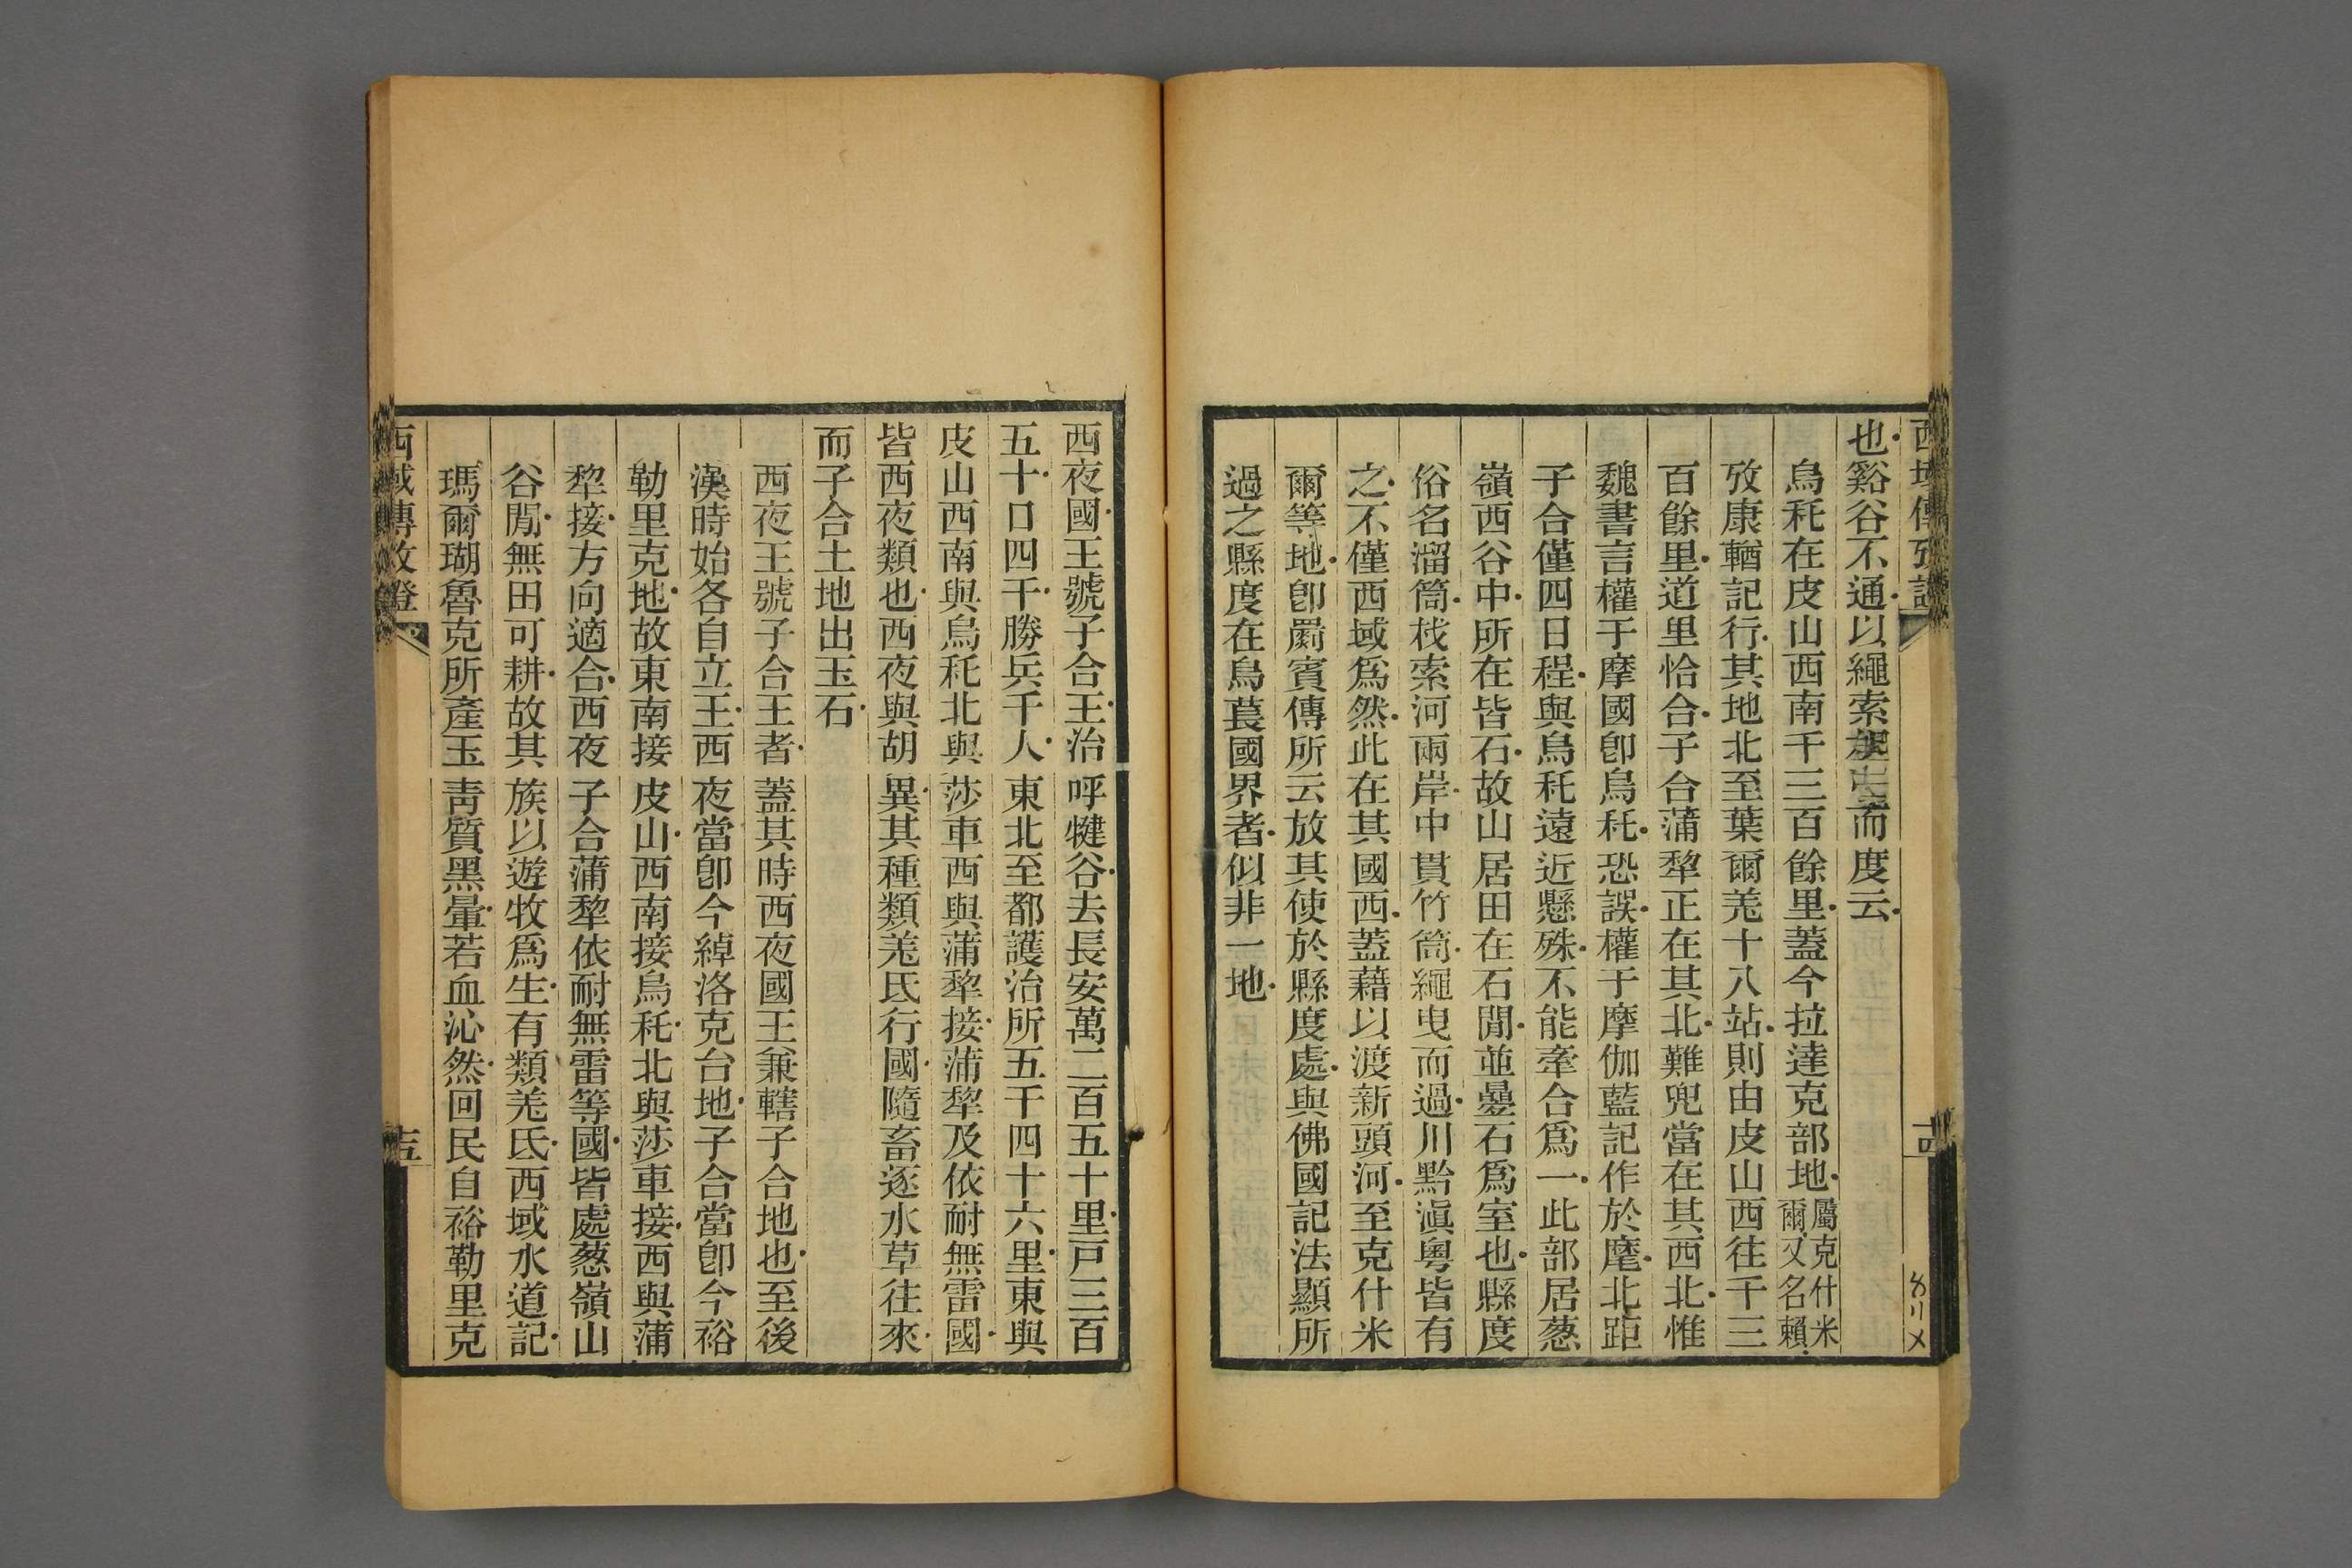 西域傳攷證
也谿谷不通以繩索而度云
烏秅在皮山西南千三百餘里蓋今拉達克部地屬克什米爾又名賴
攷康輶記行其地北至葉爾羌十八站則由皮山西往千三
百餘里道里恰合子合蒲犂正在其北難兜當在其西北惟
魏書言權于摩國卽烏秅恐誤權于摩伽藍記作於麾北距
子合僅四日程與烏秅遠近懸殊不能牽合爲一此部居葱
嶺西谷中所在皆石故山居田在石閒並壘石爲室也縣度
俗名溜筒栈索河兩岸中貫竹筒繩曳而過川黔滇粵皆有
之不僅西域爲然此在其國西蓋藉以渡新頭河至克什米
爾等地卽罽賓傳所云放其使於縣度處與佛國記法顯所
過之縣度在烏萇國界者似非一地
十四
西夜國王號子合王治呼犍谷去長安萬二百五十里戸三百
五十口四千勝兵千人東北至都護治所五千四十六里東與
皮山西南與烏秅北與莎車西與蒲犂接蒲犂及依耐無雷國
皆西夜類也西夜與胡異其種類羌氐行國隨畜逐水草往來
而子合土地出玉石
西夜王號子合王者蓋其時西夜國王兼轄子合地也至後
漢時始各自立王西夜當卽今綽洛克台地子合當卽今裕
勒里克地故東南接皮山西南接烏秅北與莎車接西與蒲
犂接方向適合西夜子合蒲犂依耐無雷等國皆處葱嶺山
谷閒無田可耕故其族以遊牧爲生有類羌氐西域水道記
瑪爾瑚魯克所產玉靑質黑暈若血沁然回民自裕勒里克
西域傳攷證
十五